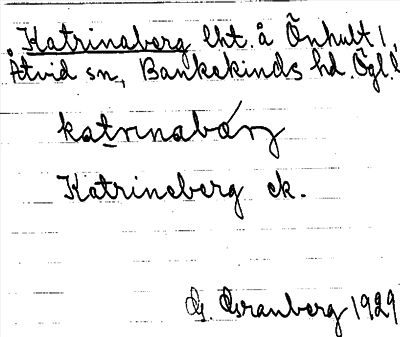 Katrinaberg lht. å Önhult 1,
Åtvid sn, Bankekinds hd. Ögl. l
katrinabærj
Katrineberg ek.
G. Granberg 1929